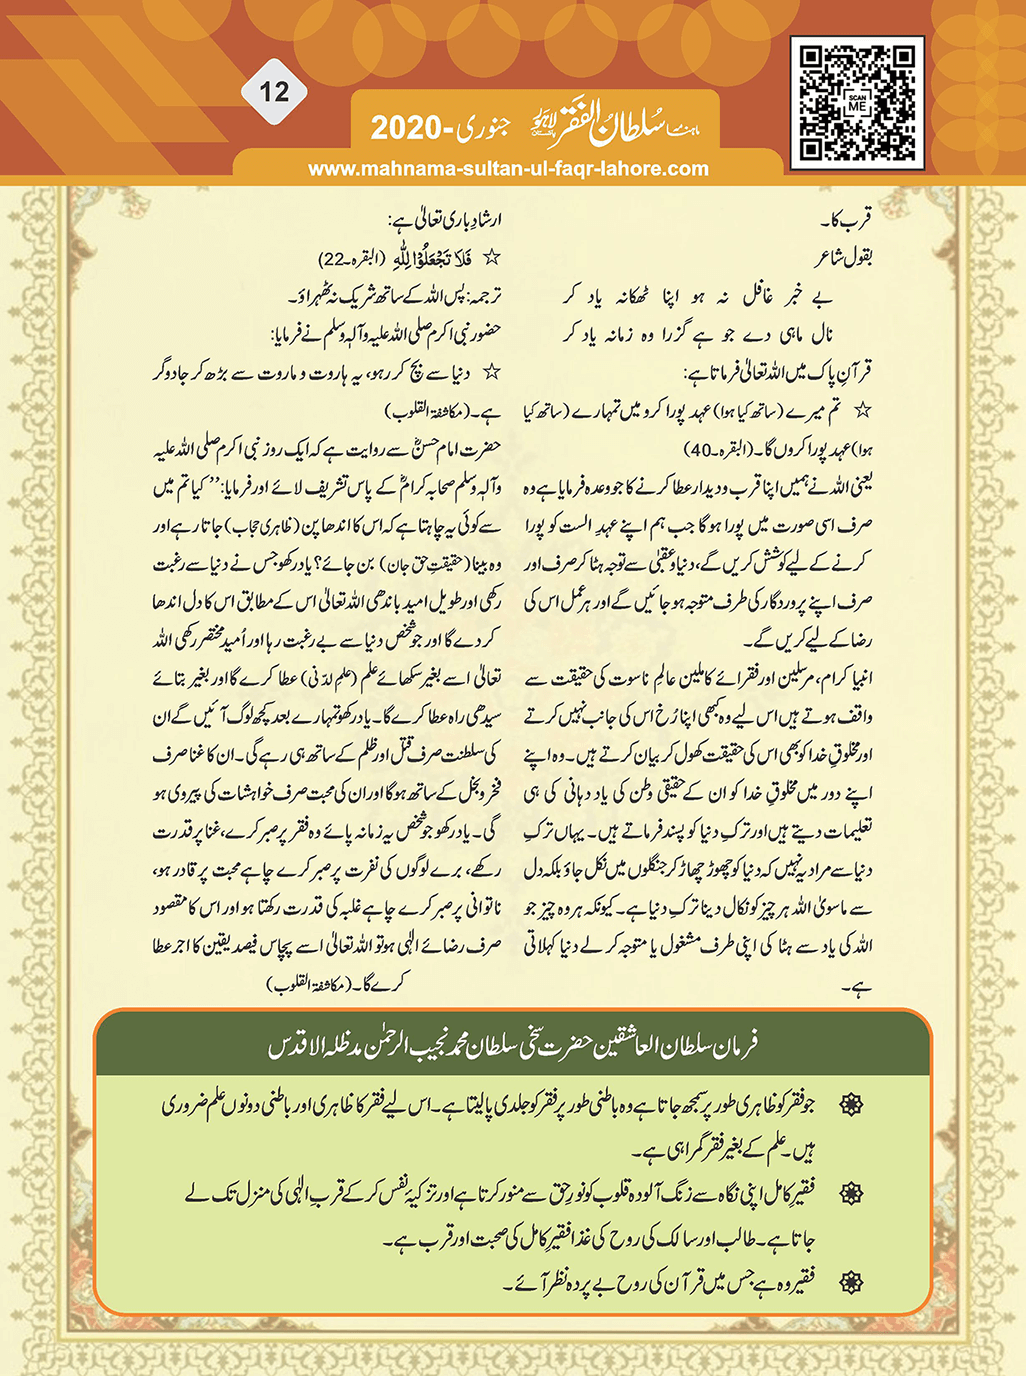 12
ماہنامہ سلطان الفقر لاہور جنوری-2020
SCAN ME
www.mahnama-sultan-ul-faqr-lahore.com
قرب کا۔
بقول شاعر
بے خبر غافل نہ ہو اپنا ٹھکانہ یاد کر
نال ماہی دے جو ہے گزرا وہ زمانہ یاد کر
قرآنِ پاک میں اللہ تعالیٰ فرماتا ہے:
☆ تم میرے (ساتھ کیا ہوا) عہد پورا کرو میں تمہارے (ساتھ کیا
ہوا) عہد پورا کروں گا۔ (البقرہ۔40)
یعنی اللہ نے ہمیں اپنا قرب و دیدار عطا کرنے کا جو وعدہ فرمایا ہے وہ
صرف اسی صورت میں پورا ہوگا جب ہم اپنے عہدِ الست کو پورا
کرنے کے لیے کوشش کریں گے، دنیا و عقبیٰ سے توجہ ہٹا کر صرف اور
صرف اپنے پروردگار کی طرف متوجہ ہو جائیں گے اور ہر عمل اس کی
رضا کے لیے کریں گے۔
انبیا کرام، مرسلین اور فقرائے کاملین عالمِ ناسوت کی حقیقت سے
واقف ہوتے ہیں اس لیے وہ کبھی اپنا رُخ اس کی جانب نہیں کرتے
اور مخلوقِ خدا کو بھی اس کی حقیقت کھول کر بیان کرتے ہیں۔ وہ اپنے
اپنے دور میں مخلوقِ خدا کو ان کے حقیقی وطن کی یاد دہانی کی ہی
تعلیمات دیتے ہیں اور ترکِ دنیا کو پسند فرماتے ہیں۔ یہاں ترکِ
دنیا سے مراد یہ نہیں کہ دنیا کو چھوڑ چھاڑ کر جنگلوں میں نکل جاؤ بلکہ دل
سے ماسویٰ اللہ ہر چیز کو نکال دینا ترکِ دنیا ہے۔ کیونکہ ہر وہ چیز جو
اللہ کی یاد سے ہٹا کی اپنی طرف مشغول یا متوجہ کر لے دنیا کہلاتی
ہے۔
ارشادِ باری تعالیٰ ہے:
☆ فَلَا تَجْعَلُوْا لِلّٰهِ (البقرہ۔22)
ترجمہ: پس اللہ کے ساتھ شریک نہ ٹھہراؤ۔
حضور نبی اکرم صلی اللہ علیہ وآلہٖ وسلم نے فرمایا:
☆ دنیا سے بچ کر رہو، یہ ہاروت و ماروت سے بڑھ کر جادوگر
ہے۔ (مکاشفۃ القلوب)
حضرت امام حسنؓ سے روایت ہے کہ ایک روز نبی اکرم صلی اللہ علیہ
وآلہٖ وسلم صحابہ کرامؓ کے پاس تشریف لائے اور فرمایا: ’’کیا تم میں
سے کوئی یہ چاہتا ہے کہ اس کا اندھا پن (ظاہری حجاب) جاتا رہے اور
وہ بینا (حقیقتِ حق جان) بن جائے؟ یاد رکھو جس نے دنیا سے رغبت
رکھی اور طویل امید باندھی اللہ تعالیٰ اس کے مطابق اس کا دل اندھا
کر دے گا اور جو شخص دنیا سے بے رغبت رہا اور اُمید مختصر رکھی اللہ
تعالیٰ اسے بغیر سکھائے علم (علمِ لدنی) عطا کرے گا اور بغیر بتائے
سیدھی راہ عطا کرے گا۔ یاد رکھو تمہارے بعد کچھ لوگ آئیں گے ان
کی سلطنت صرف قتل اور ظلم کے ساتھ ہی رہے گی۔ ان کا غنا صرف
فخر و بخل کے ساتھ ہوگا اور ان کی محبت صرف خواہشات کی پیروی ہو
گی۔ یاد رکھو جو شخص یہ زمانہ پائے وہ فقر پر صبر کرے، غنا پر قدرت
رکھے، برے لوگوں کی نفرت پر صبر کرے چاہے محبت پر قادر ہو،
ناتوانی پر صبر کرے چاہے غلبہ کی قدرت رکھتا ہو اور اس کا مقصود
صرف رضائے الٰہی ہو تو اللہ تعالیٰ اسے پچاس فیصد یقین کا اجر عطا
کرے گا۔ (مکاشفۃ القلوب)
فرمان سلطان العاشقین حضرت سخی سلطان محمد نجیب الرحمٰن مدظلہ الاقدس
جو فقر کو ظاہری طور پر سمجھ جاتا ہے وہ باطنی طور پر فقر کو جلدی پا لیتا ہے۔ اس لیے فقر کا ظاہری اور باطنی دونوں علم ضروری
ہیں۔ علم کے بغیر فقر گمراہی ہے۔
فقیرِ کامل اپنی نگاہ سے زنگ آلودہ قلوب کو نورِ حق سے منور کرتا ہے اور تزکیۂ نفس کر کے قربِ الٰہی کی منزل تک لے
جاتا ہے۔ طالب اور سالک کی روح کی غذا فقیرِ کامل کی صحبت اور قرب ہے۔
فقیر وہ ہے جس میں قرآن کی روح بے پردہ نظر آئے۔